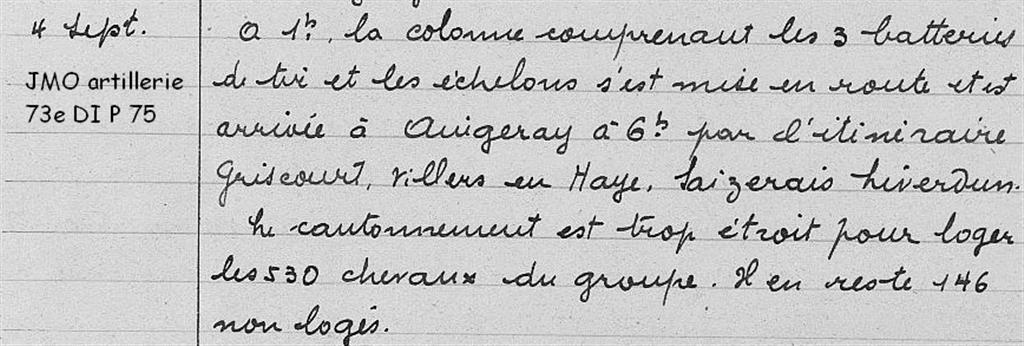 4 Sept.
JMO artillerie
73e DI P 75
A 1h, la colonne comprenant les 3 batteries
de tir et les échelons s'est mise en route et est
arrivée à Avigeray à 6h par l'itinéraire
Griscourt, Villers en Haye, Saizerais Liverdun.
Le cantonnement est trop étroit pour loger
les 530 chevaux du groupe. Il en reste 146
non logés.